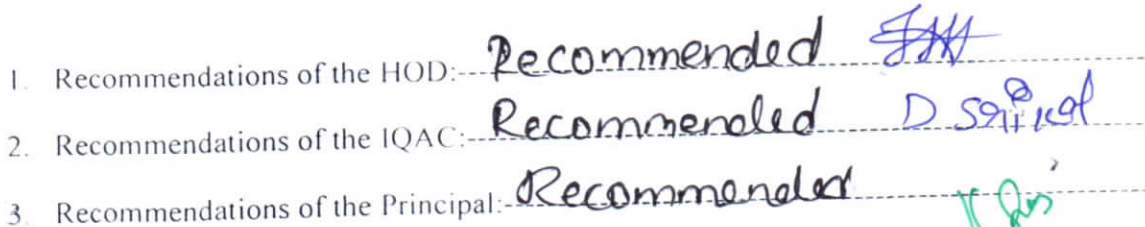 1. Recommendations of the HOD:--Recommended
2. Recommendations of the IQAC:--Recommended D
3. Recommendations of the Principal:-Recommended